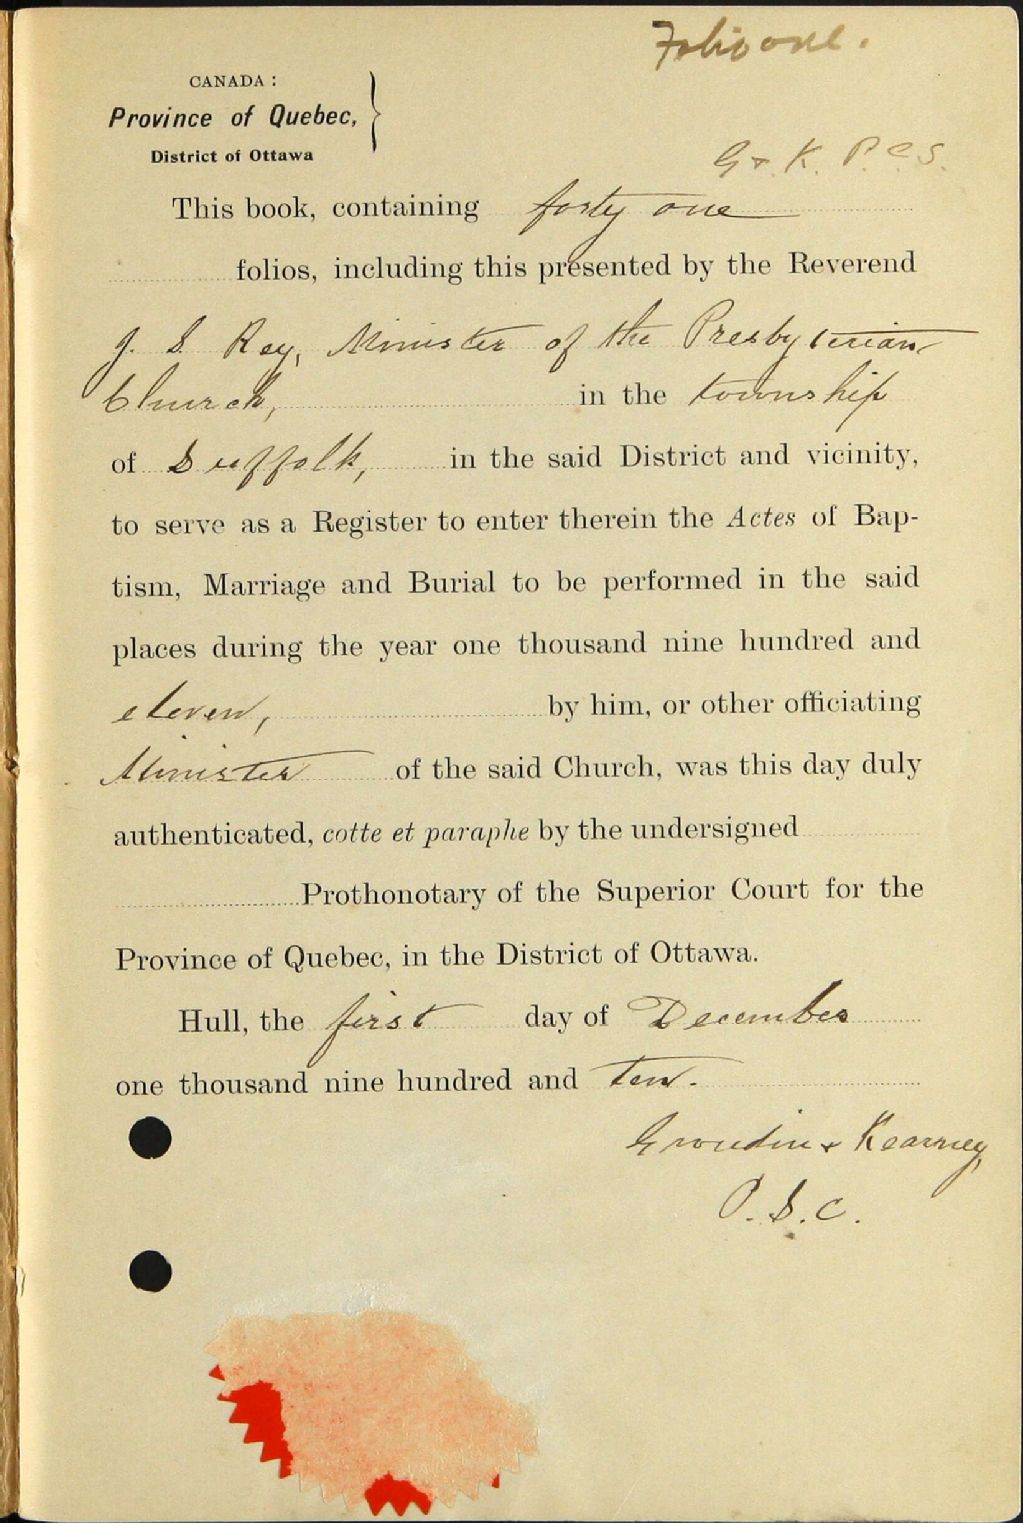 Folio one.
CANADA :
Province of Quebec,
District of Ottawa
G & K. P. C S.
This book, containing forty one
folios, including this presented by the Reverend
J. S. Rey, Minister of the Presbyterian
Church, in the township
of Suffolk, in the said District and vicinity,
to serve as a Register to enter therein the Actes of Bap-
tism, Marriage and Burial to be performed in the said
places during the year one thousand nine hundred and
eleven, by him, or other officiating
Minister of the said Church, was this day duly
authenticated, cotte et paraphe by the undersigned
Prothonotary of the Superior Court for the
Province of Quebec, in the District of Ottawa.
Hull, the first day of December
one thousand nine hundred and ten.
Grondin & Kearney,
P. S. C.